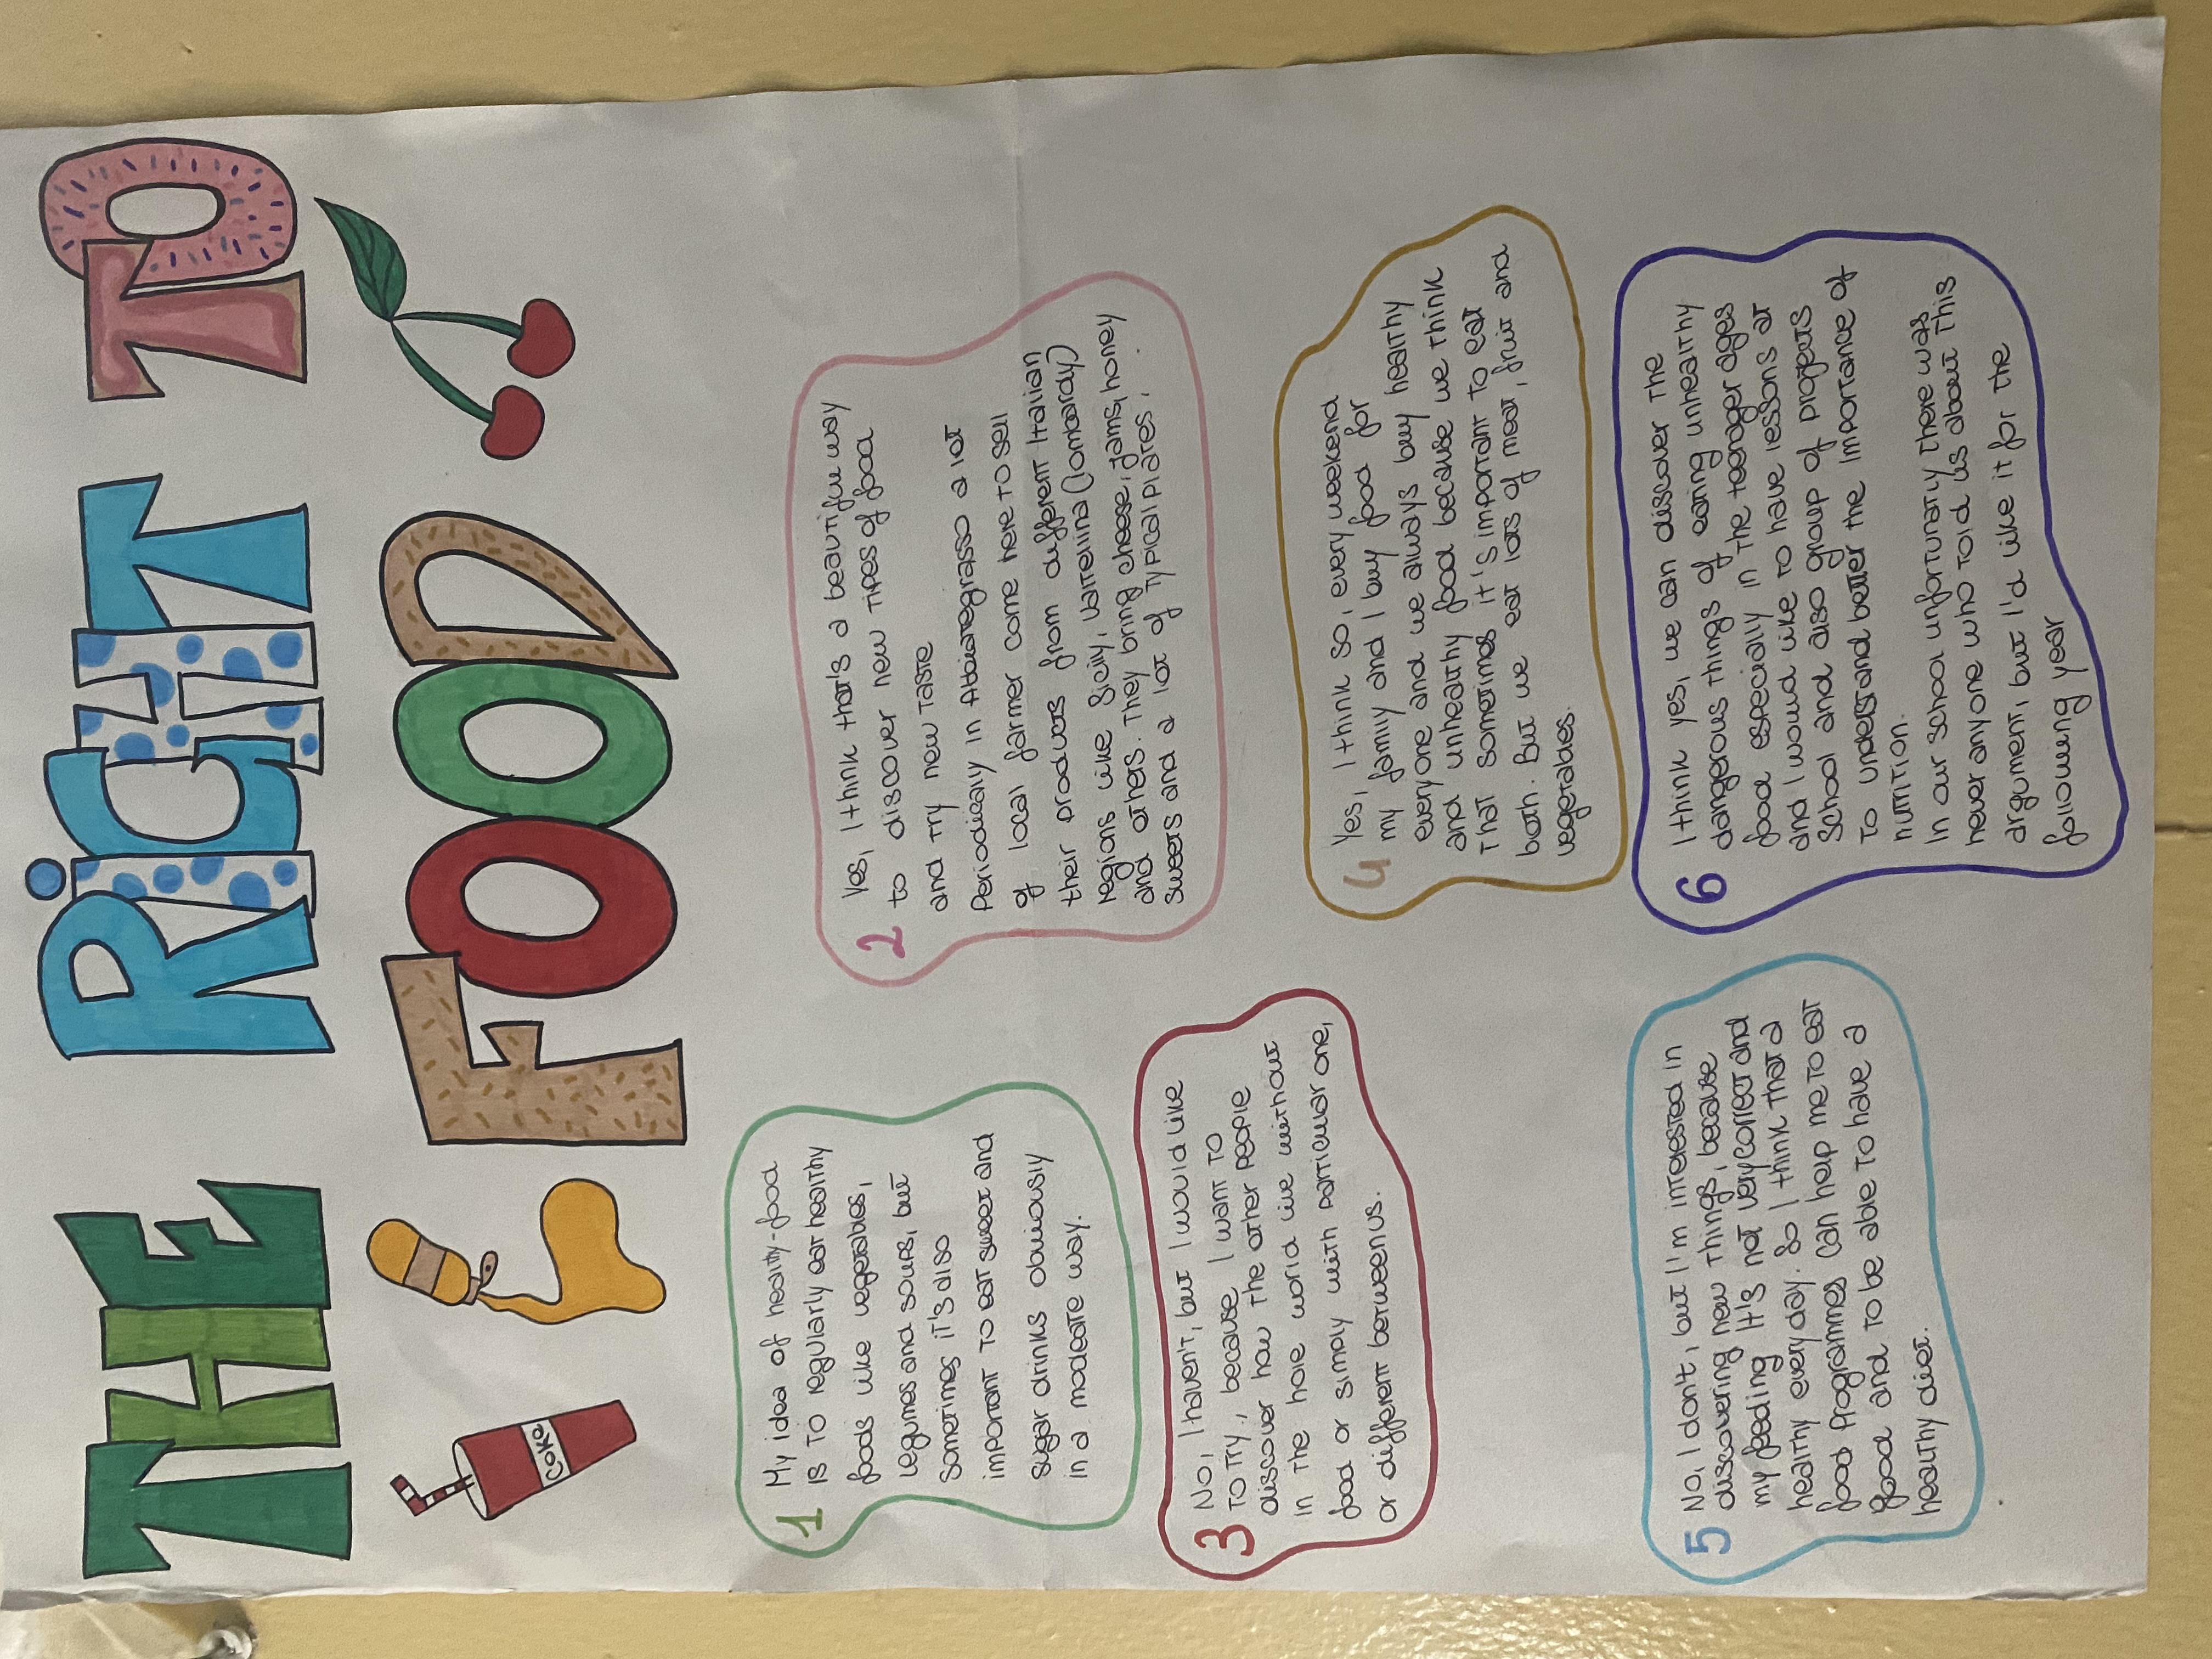 THE RIGHT TO
FOOD
COKE
1
My idea of healthy-food
is to regularly eat healthy
foods like vegetables,
legumes and sours, but
sometimes it's also
important to eat sweet and
sugar drinks obviously
in a modeate way.
2
Yes, I think that's a beautiful way
to discover new types of food
and try new taste
Periodically in Abbiategrasso a lot
of local farmer come here to sell
their products from different Italian
regions like Sicily, Valtellina (Lombardy)
and others. They bring cheese, jams, honey
sweets and a lot of typical plates.
3
No, I haven't, but I would like
to try, because I want to
discover how the other people
in the hole world live without
food or simply with particular one,
or different between us.
4
Yes, I think so, every weekend
my family and I buy food for
everyone and we always buy healthy
and unhealthy food because we think
that sometimes it's important to eat
both. But we eat lots of meat, fruit and
vegetables.
5
No, I don't, but I'm interested in
discovering new things, because
my feeding it's not very correct and
healthy every day. So I think that a
food programmes can help me to eat
good and to be able to have a
healthy diet.
6
I think yes, we can discover the
dangerous things of eating unhealthy
food especially in the teenager ages
and I would like to have lessons at
school and also group of projects
to understand better the importance of
nutrition.
In our school unfortunatly there was
never anyone who told us about this
argument, but I'd like it for the
following year